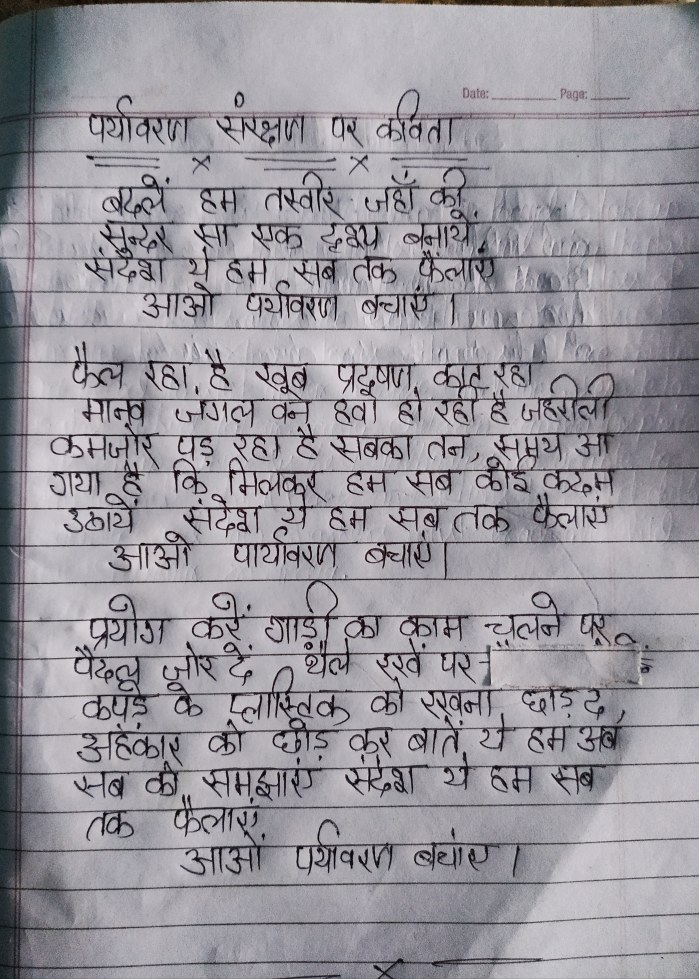 Date: Page:
पर्यावरण संरक्षण पर कविता
बदलें हम तस्वीर जहाँ की
सुन्दर सा एक दृश्य बनायें,
संदेश ये हम सब तक फैलाएं
आओ पर्यावरण बचाएं ।
फैल रहा है खूब प्रदूषण काट रहा
मानव जंगल वन हवा हो रही है जहरीली
कमजोर पड़ रहा है सबका तन, समय आ
गया है कि मिलकर हम सब कोई कदम
उठायें संदेश ये हम सब तक फैलाएं
आओ पार्यावरण बचाएं।
प्रयोग करें गाड़ी का काम चलने पर
पैदल जोर दें थैले रखें पर
कपड़े के प्लास्तिक को रखना छोड़ दें,
अहंकार को छोड़ कर बातें ये हम अब
सब को समझाएं संदेश ये हम सब
तक फैलाएं
आओं पर्यावरण बचांए ।